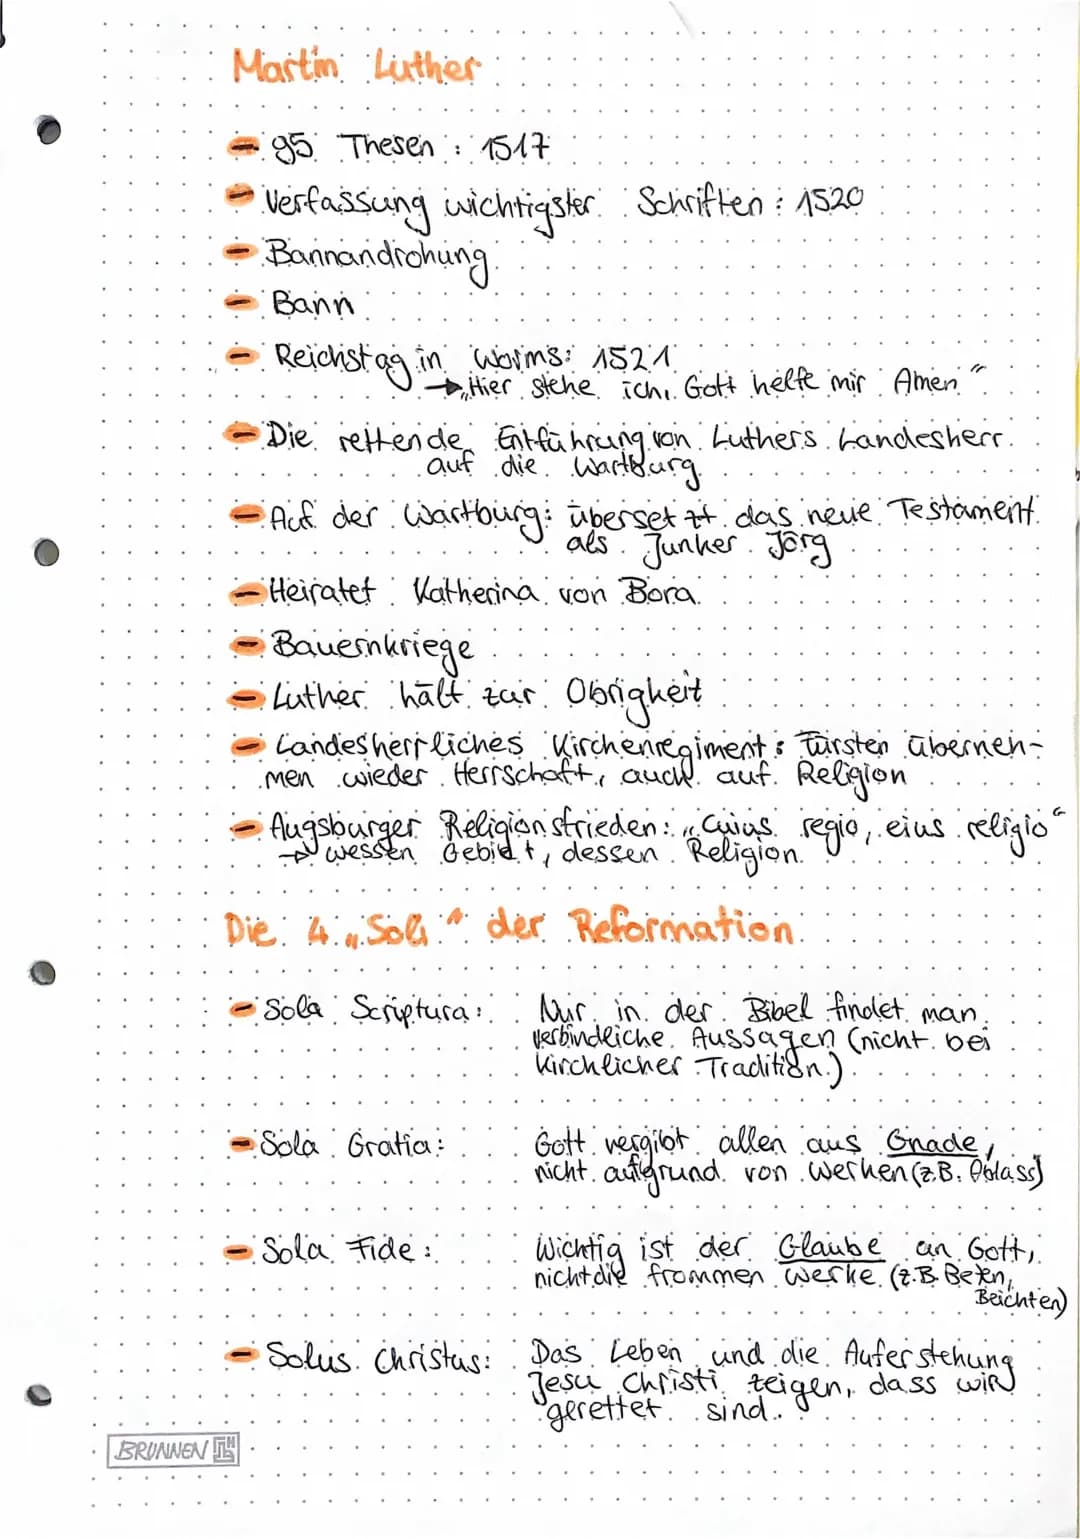 Martin Luther
- 95 Thesen: 1517
- Verfassung wichtigster Schriften: 1520
- Bannandrohung
- Bann
- Reichstag in Worms: 1521
→ „Hier stehe ich, Gott helfe mir Amen"
- Die rettende Entführung von Luthers Landesherr
auf die Wartburg
- Auf der Wartburg: übersetzt das neue Testament
als Junker Jörg
- Heiratet Katherina von Bora
- Bauernkriege
- Luther hält zur Obrigkeit
- Landesherrliches Kirchenregiment: Fürsten überneh-
men wieder Herrschaft, auch auf Religion
- Augsburger Religionsfrieden: „Cuius regio, eius religio"
→ wessen Gebiet, dessen Religion
Die 4 „Soli" der Reformation
- Sola Scriptura: Nur in der Bibel findet man
verbindliche Aussagen (nicht bei
kirchlicher Tradition)
- Sola Gratia: Gott vergibt allen aus Gnade,
nicht aufgrund von Werken (z.B. Ablass)
- Sola Fide: Wichtig ist der Glaube an Gott,
nicht die frommen Werke (z.B. Beten,
Beichten)
- Solus Christus: Das Leben und die Auferstehung
Jesu Christi zeigen, dass wir
gerettet sind.
BRUNNEN